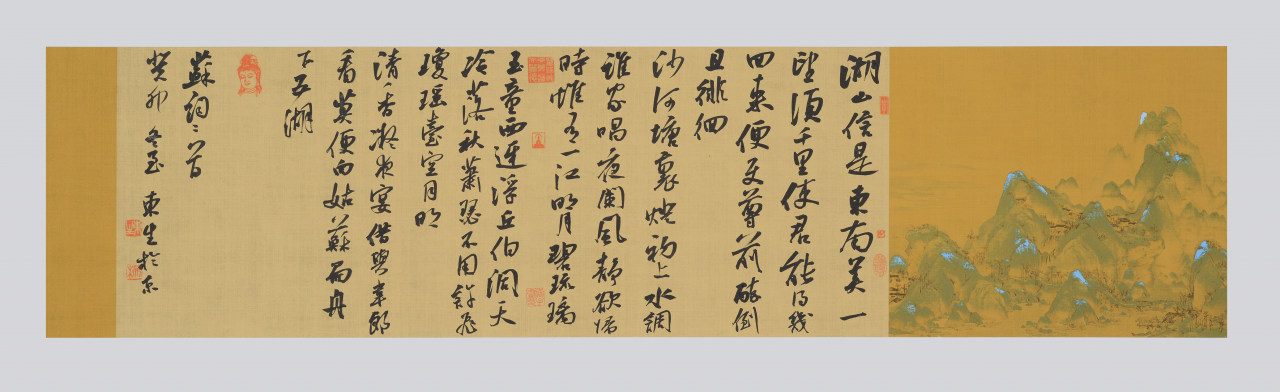 湖山信是東南美一
望須千里使君能得幾
回來便使尊前醉倒
且徘徊
沙河塘裏燈初上水調
誰家唱夜闌風靜欲歸
時惟有一江明月碧琉璃
玉童西迓浮丘伯洞天
冷落秋蕭瑟不用許飛
瓊瑤臺空月明
清香凝夜宴借與韋郎
看莫便向姑蘇扁舟
下五湖
蘇詞二首
癸卯冬至東生於京